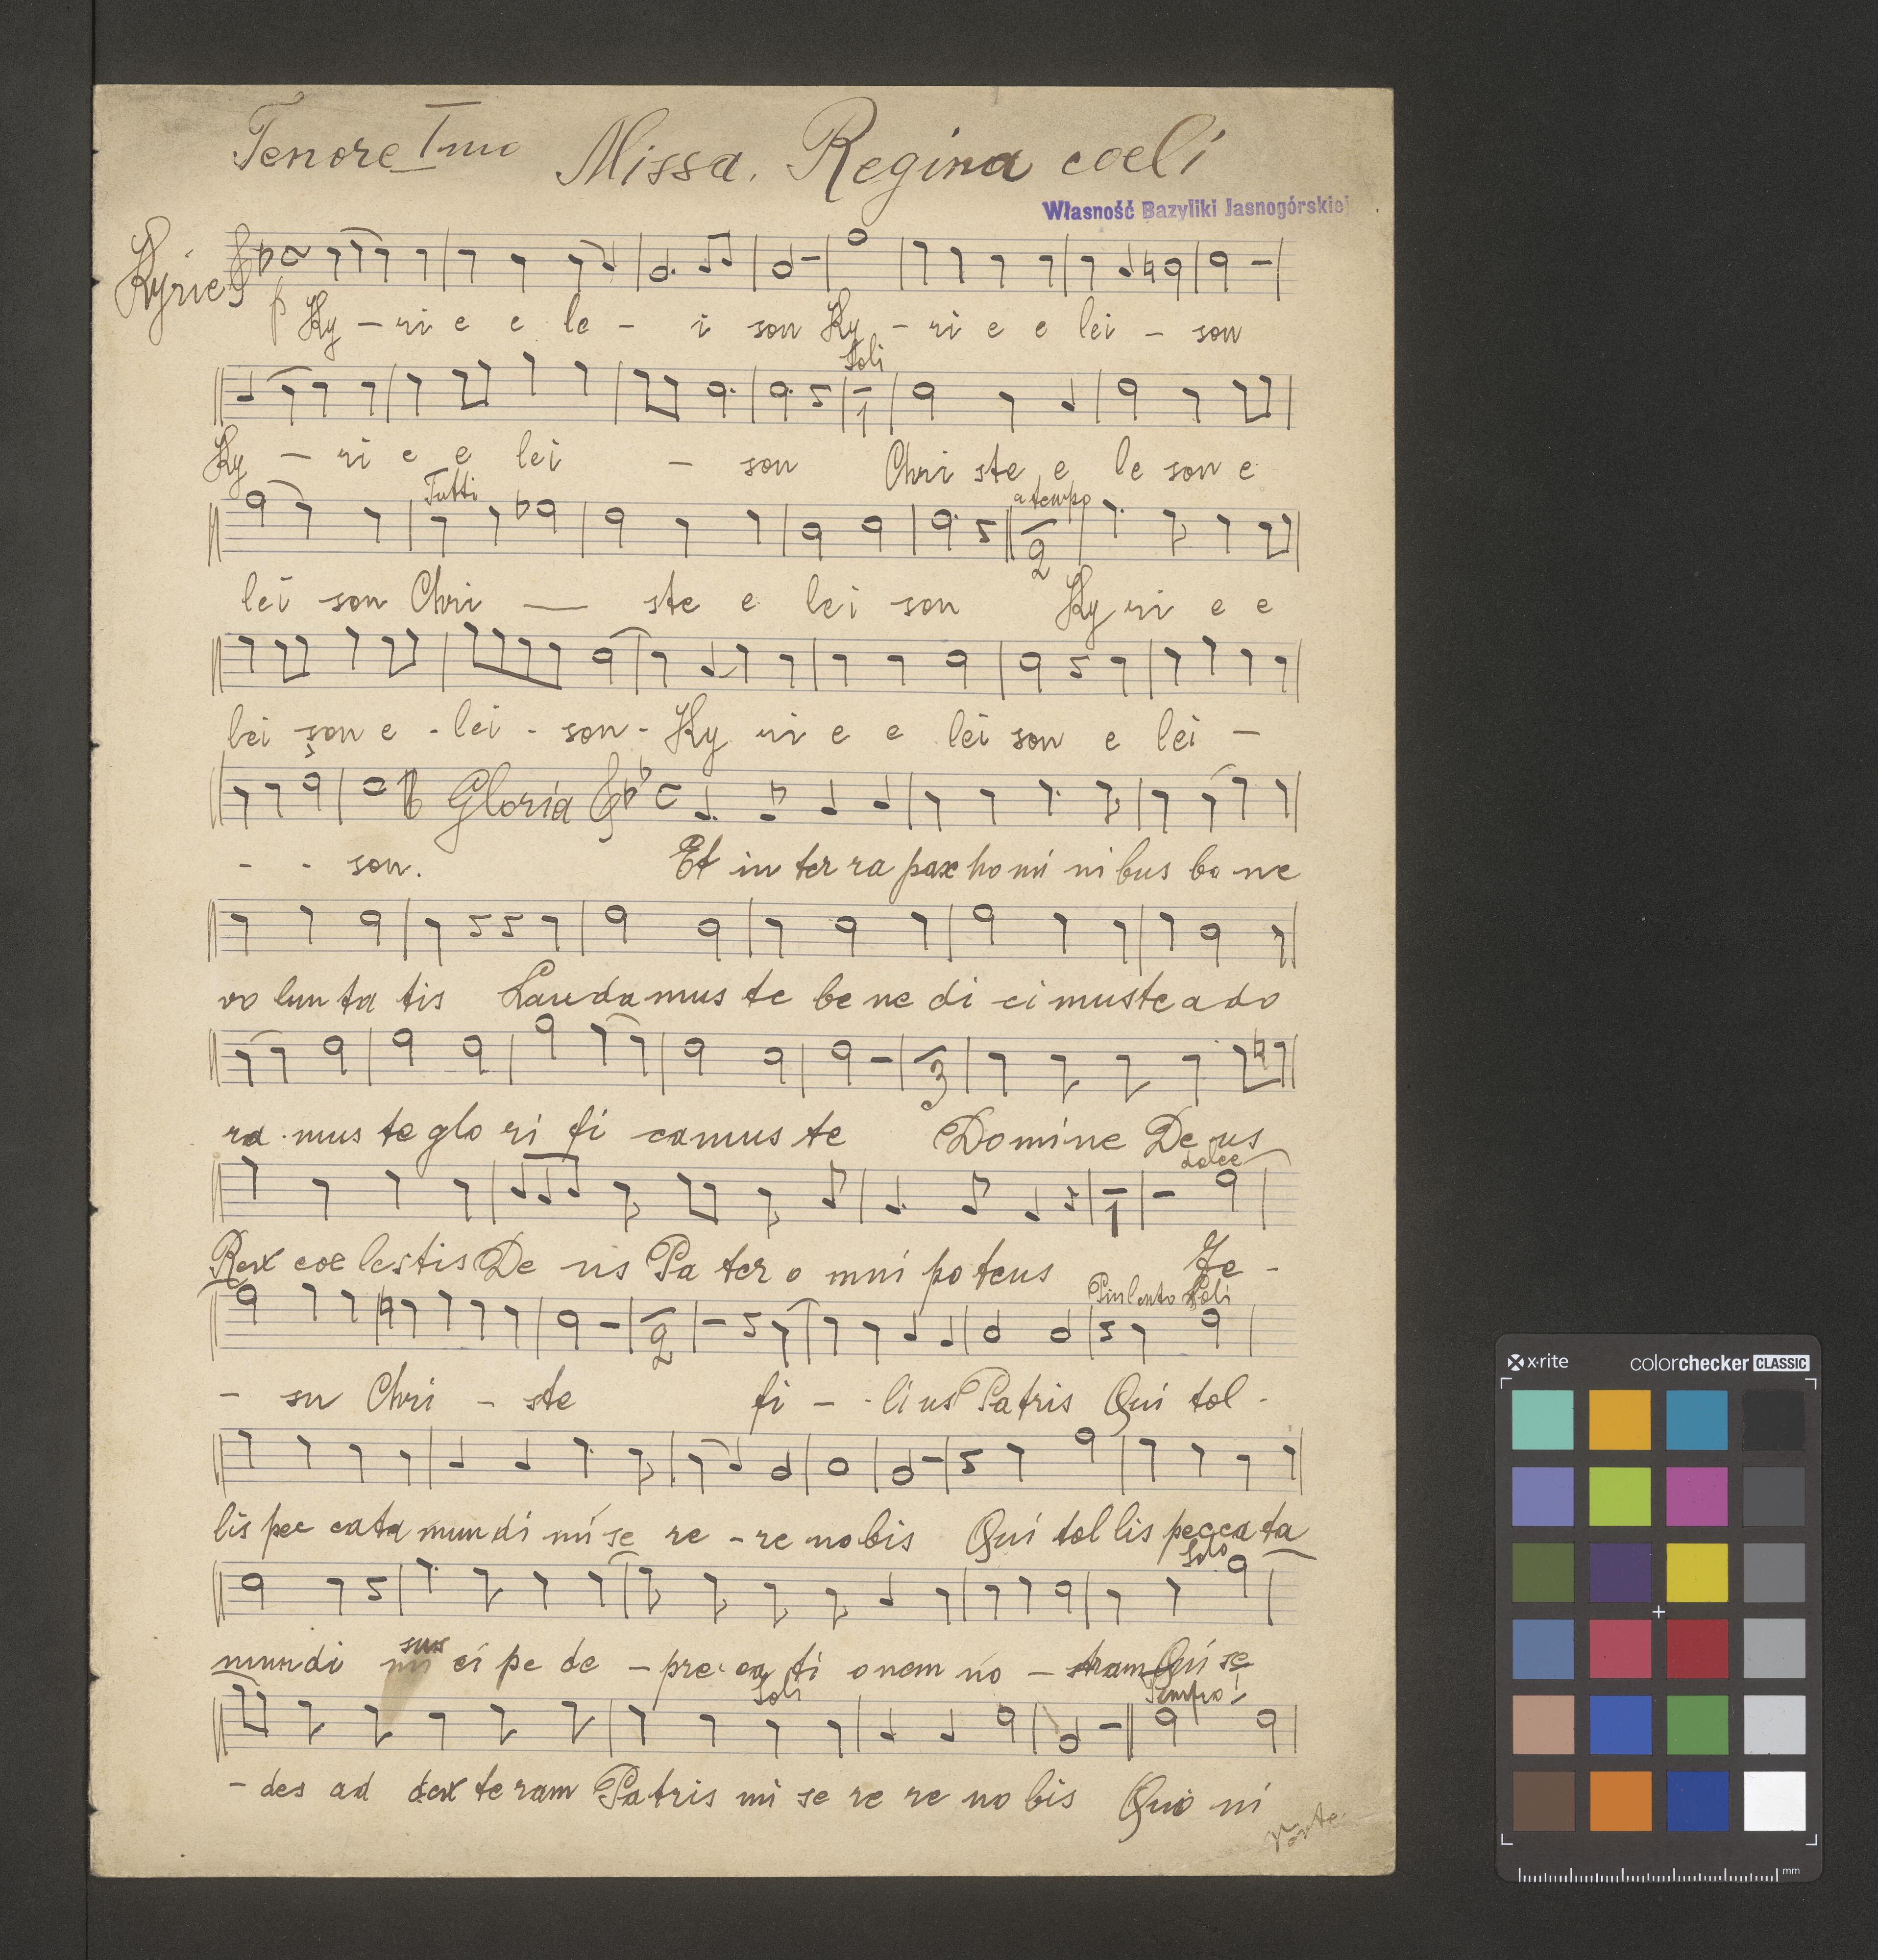 Tenore Imo Missa. Regina coeli
Własność Bazyliki Jasnogórskiej
Kyrie
p Ky - ri e e le - i son Ky - ri e e lei - son
Soli
Ky - ri e e lei - son Chri ste e le son e
Tutti a tempo
2
lei son Chri — ste e lei son Ky ri e e
lei son e - lei - son - Ky ri e e lei son e lei -
Gloria
- - son. Et in ter ra pax ho mi ni bus bo ne
vo lun ta tis Lauda mus te be ne di ci muste a do
3
ra - mus te glo ri fi camus te Domine De us
dolce
1
Rex coe lestis De us Pa ter o mni potens Je -
Piu lento Soli
2
- su Chri - ste fi - - li us Patris Qui tol -
lis pec cata mun di mi se re - re nobis Qui tol lis peccata
Solo
mundi sus ci pe de - preca ti onem no - stram Qui se
Soli Tempo I
- des ad dex te ram Patris mi se re re no bis Quo ni
x-rite colorchecker CLASSIC
mm